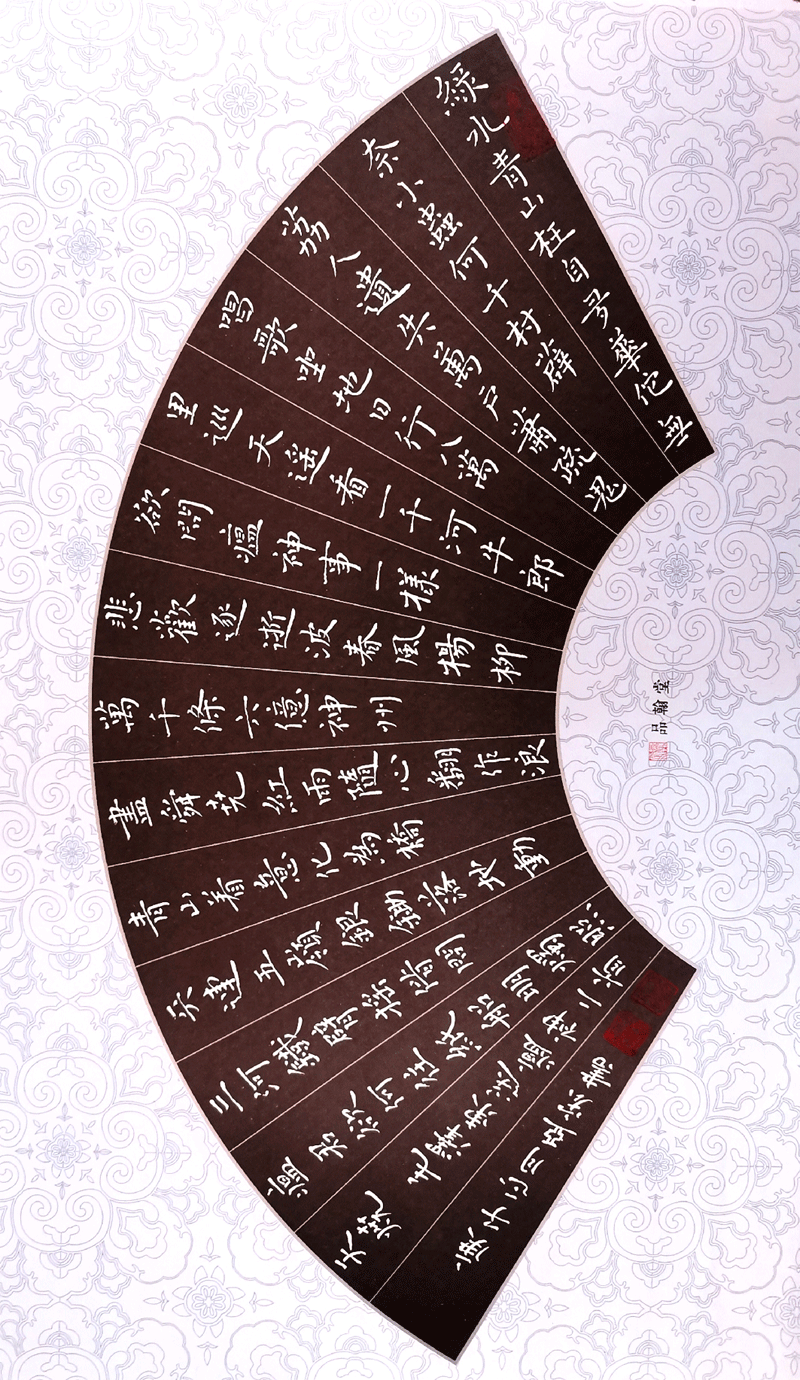 綠水青山枉自多華佗無
奈小蟲何千村薜
荔人遺失萬戶蕭疏鬼
唱歌坐地日行八萬
里巡天遥看一千河牛郎
欲問瘟神事一樣
悲歡逐逝波春風楊柳
萬千條六億神州
盡舜尭紅雨隨心翻作浪
青山着意化為橋
天連五嶺銀鋤落地動
三河鐵臂摇借問
瘟君欲何往紙船明燭照
天燒 毛澤東送瘟神二首
庚子 月 書
品翰堂